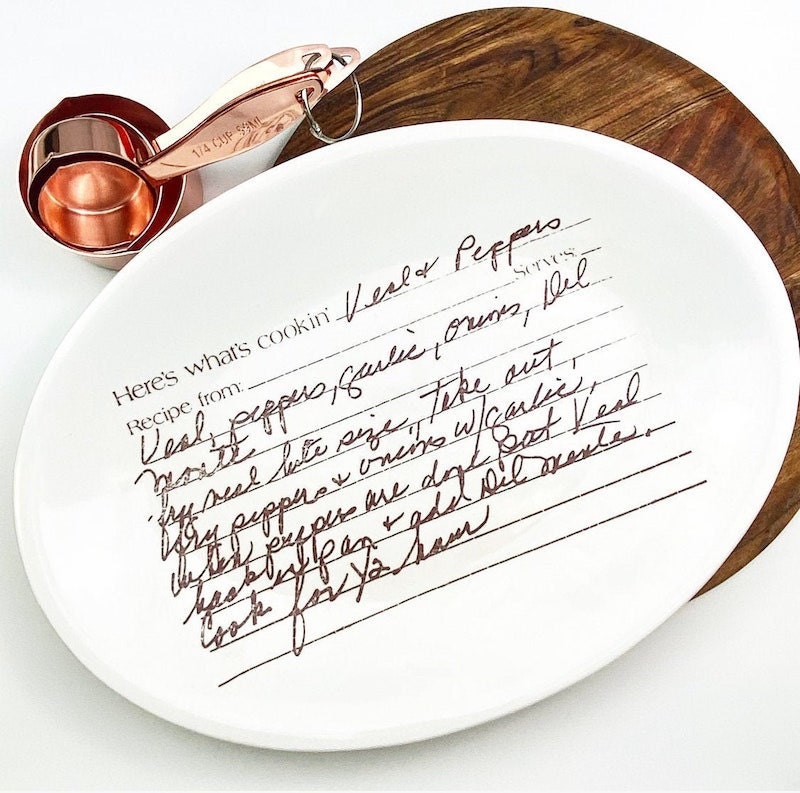 1/4 CUP 59ML
Here's what's cookin' Veal & Peppers
Recipe from: Serves:
Veal, peppers, garlic, onions, Del
Monte.
fry veal bite size, Take out,
fry peppers & onions w/garlic,
When pepers are done Put Veal
back in pan & add Del Monte.
Cook for 1/2 hour